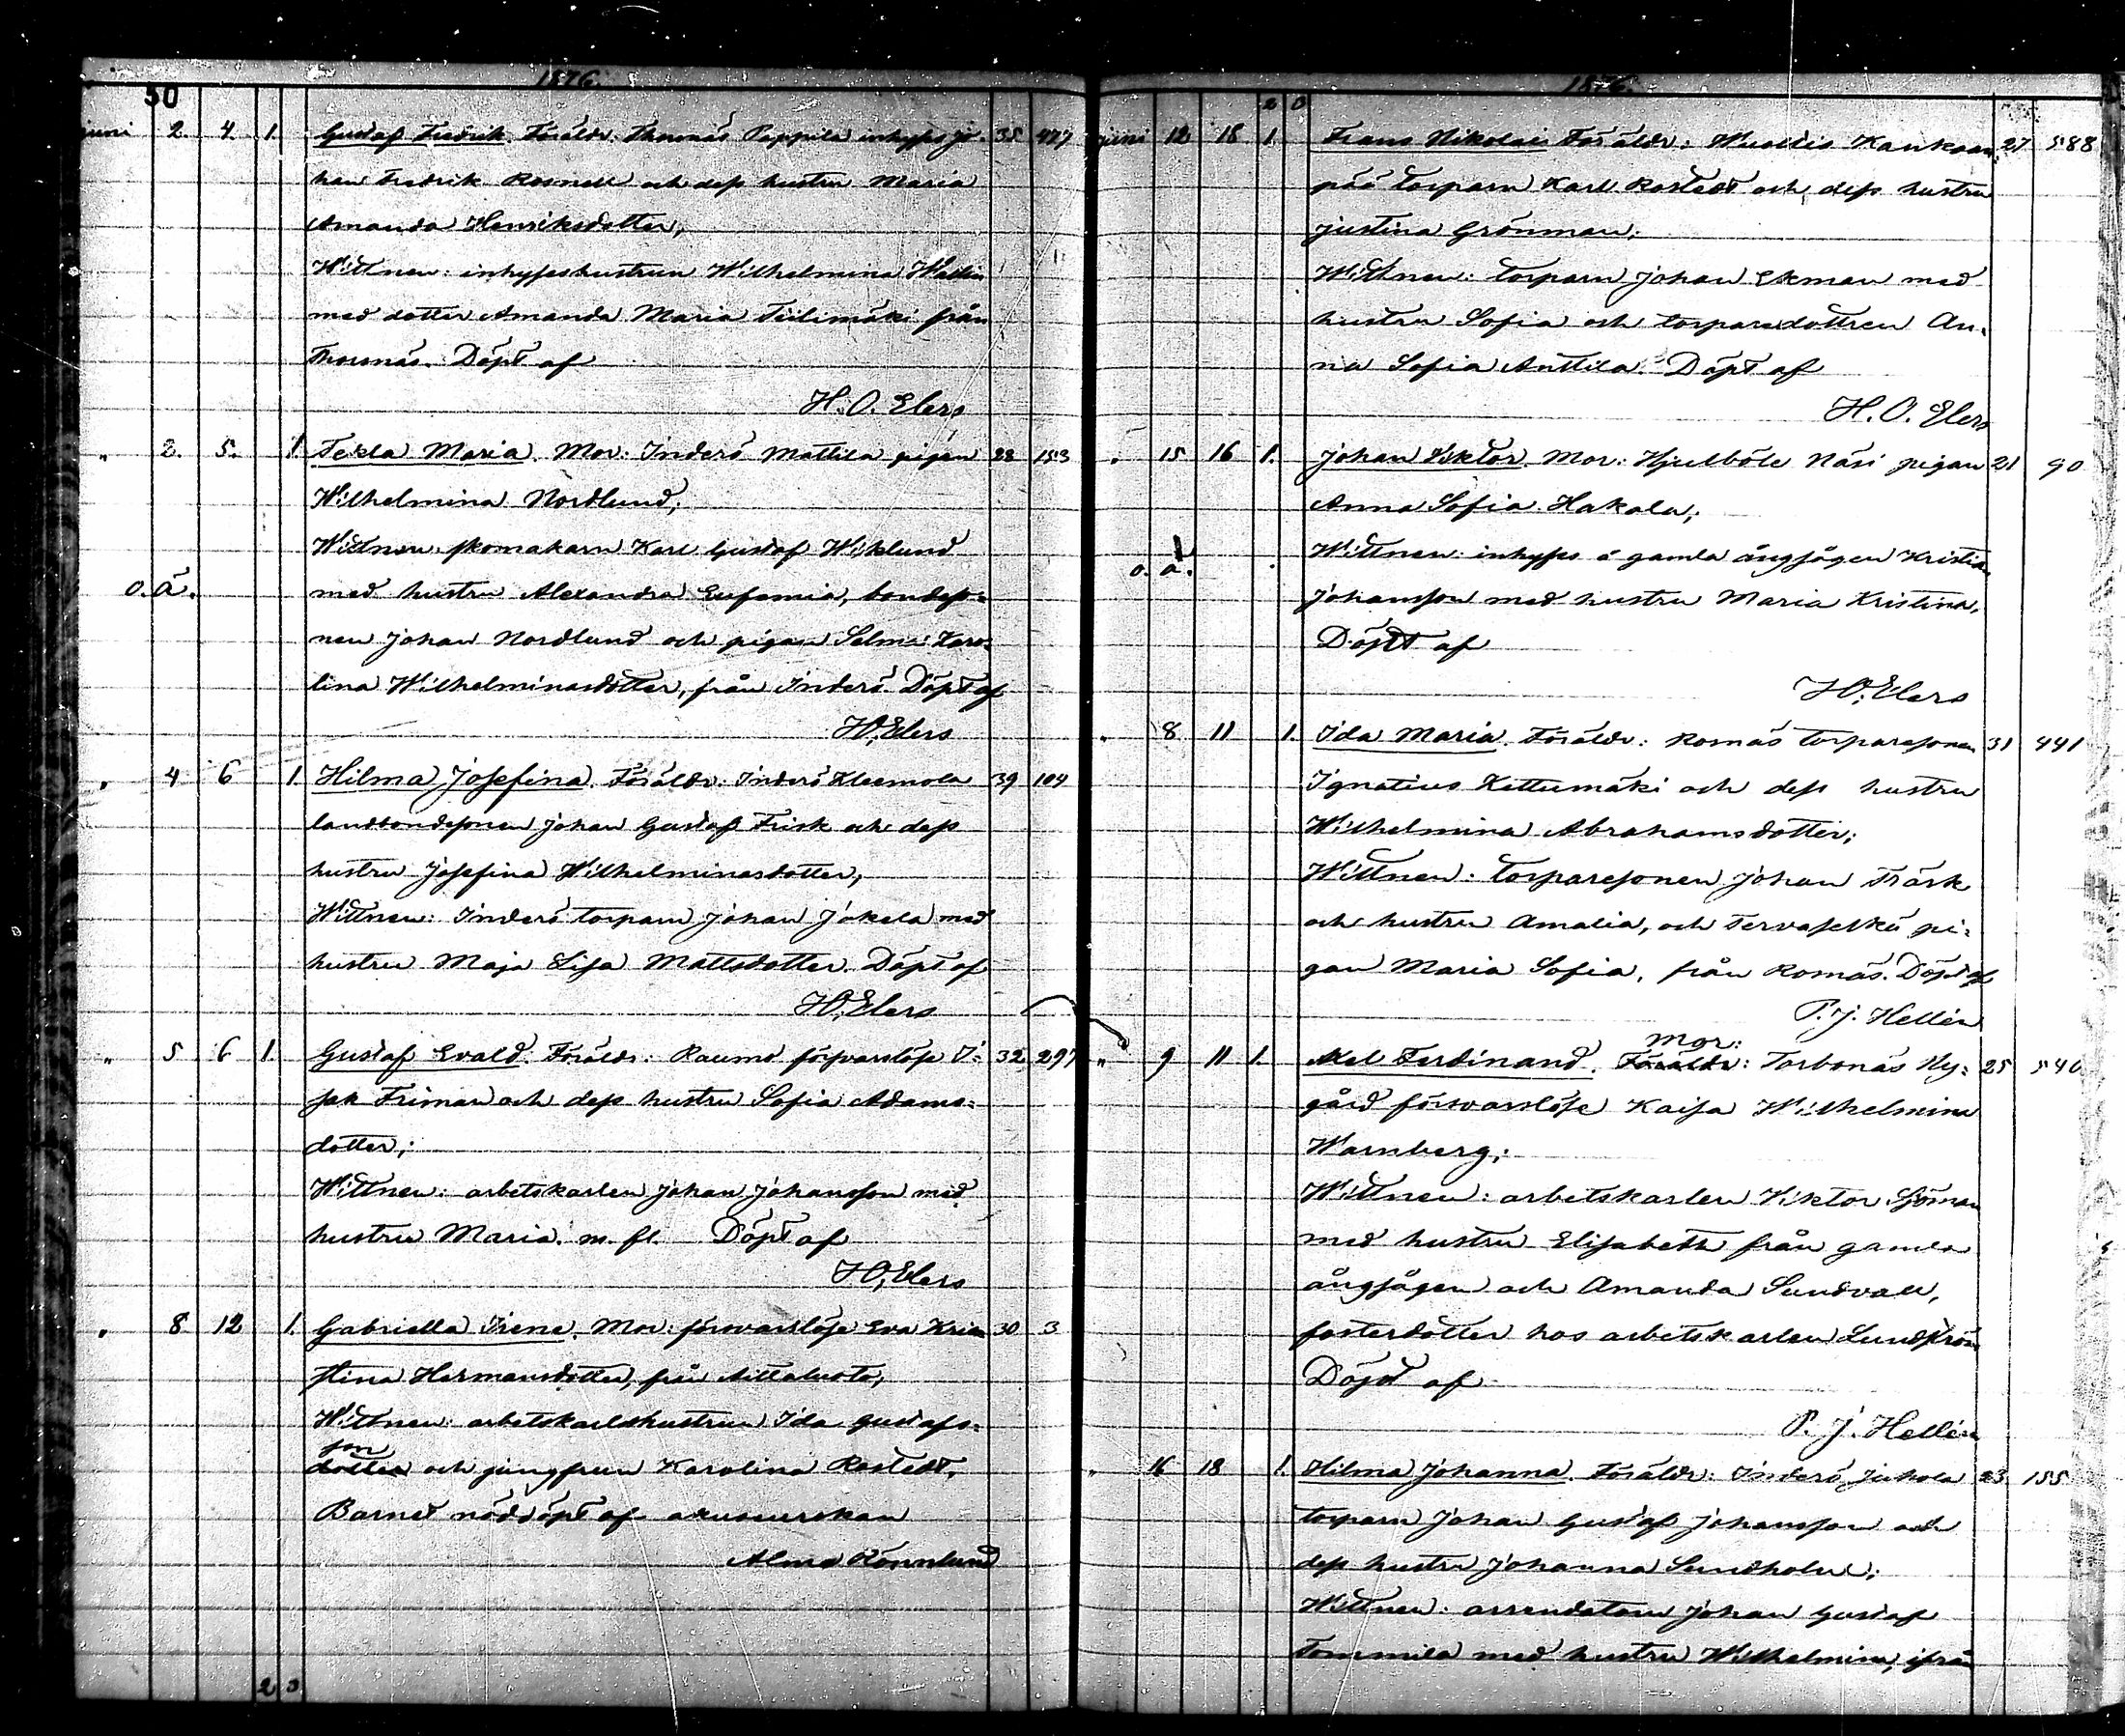 1876.
50
juni 2. 4. 1. Gustaf Fredrik. Föräldr. Thomäs Pappila inhyses Jo- 35 477
han Fredrik Rosnell och dess hustru Maria
Amanda Henriksdotter;
Wittnen: inhyseshustrun Wilhelmina Wallin
med dotter Amanda Maria Tiilimäki från
Thomäs. Döpt af
H. O. Elers
" 2. 5. 1. Tekla Maria. Mor: Inderö Mattila pigan 28 153
Wilhelmina Nordlund;
Wittnen skomakarn Karl Gustaf Wiklund
o. ä. med hustru Alexandra Eufemia, bondeso-
nen Johan Nordlund och pigan Selma Karo-
lina Wilhelminasdotter, från Inderö. Döpt af
H.O. Elers
" 4 6 1. Hilma Josefina. Föräldr: Inderö Kleemola 39 104
landbondesonen Johan Gustaf Frisk och dess
hustru Josefina Wilhelminasdotter;
Wittnen: Inderö torparn Johan Jokela med
hustru Maja Lisa Mattsdotter. Döpt af
H.O. Elers
" 5 6 1. Gustaf Evald. Föräldr: Raumo försvarslöse I- 32 297
sak Friman och dess hustru Sofia Adams-
dotter;
Wittnen: arbetskarlen Johan Johansson med
hustru Maria m. fl. Döpt af
H.O. Elers
" 8 12 1. Gabriella Irene. Mor: försvarslösa Eva Kris- 30 3
tina Hermansdotter, från Aittaluoto;
Wittnen: arbetskarlshustrun Ida Gustafs-
son
dotter och jungfrun Karolina Rostedt,
Barnet nöddöpt af ackuscherskan
Alma Rönnlund
2 3
1876.
2 3
juni 12 18 1. Frans Nikolai. Föräldr: Wuoltis Kankaan- 27 588
pää torparn Karl Rostedt och dess hustru
Justina Grönman;
Wittnen: torparn Johan Ekman med
hustru Sofia och torparedottren An-
na Sofia Anttila. Döpt af
H. O. Elers
" 15 16 1. Johan Viktor. Mor: Hjulböle Näsi pigan 21 90
Anna Sofia Hakala;
o. ä. Wittnen: inhyses å gamla ångsågen Kristian
Johansson med hustru Maria Kristina.
Döpt af
H.O. Elers
" 8 11 1. Ida Maria. Föräldr: Romäs torparesonen 31 441
Ignatius Kettumäki och dess hustru
Wilhelmina Abrahamsdotter;
Wittnen: torparesonen Johan Träsk
och hustru Amalia, och Tervaselkä pi-
gan Maria Sofia, från Romäs. Döpt af
P. J. Hellén
Mor:
" 9 11 1. Axel Ferdinand. Föräldr: Torbonäs Ny- 25 540
gård försvarslösa Kaisa Wilhelmina
Warnberg;
Wittnen: arbetskarlen Viktor Sjöman
med hustru Elisabeth från gamla
ångsågen och Amanda Sundvall,
fosterdotter hos arbetskarlen Lundström
Döpt af
P. J. Hellén
" 16 18 1. Hilma Johanna. Föräldr: Inderö Juhola 23 155
torparn Johan Gustaf Johansson och
dess hustru Johanna Sundholm;
Wittnen: arrendatorn Johan Gustaf
Tommila med hustru Wilhelmina, ifrån